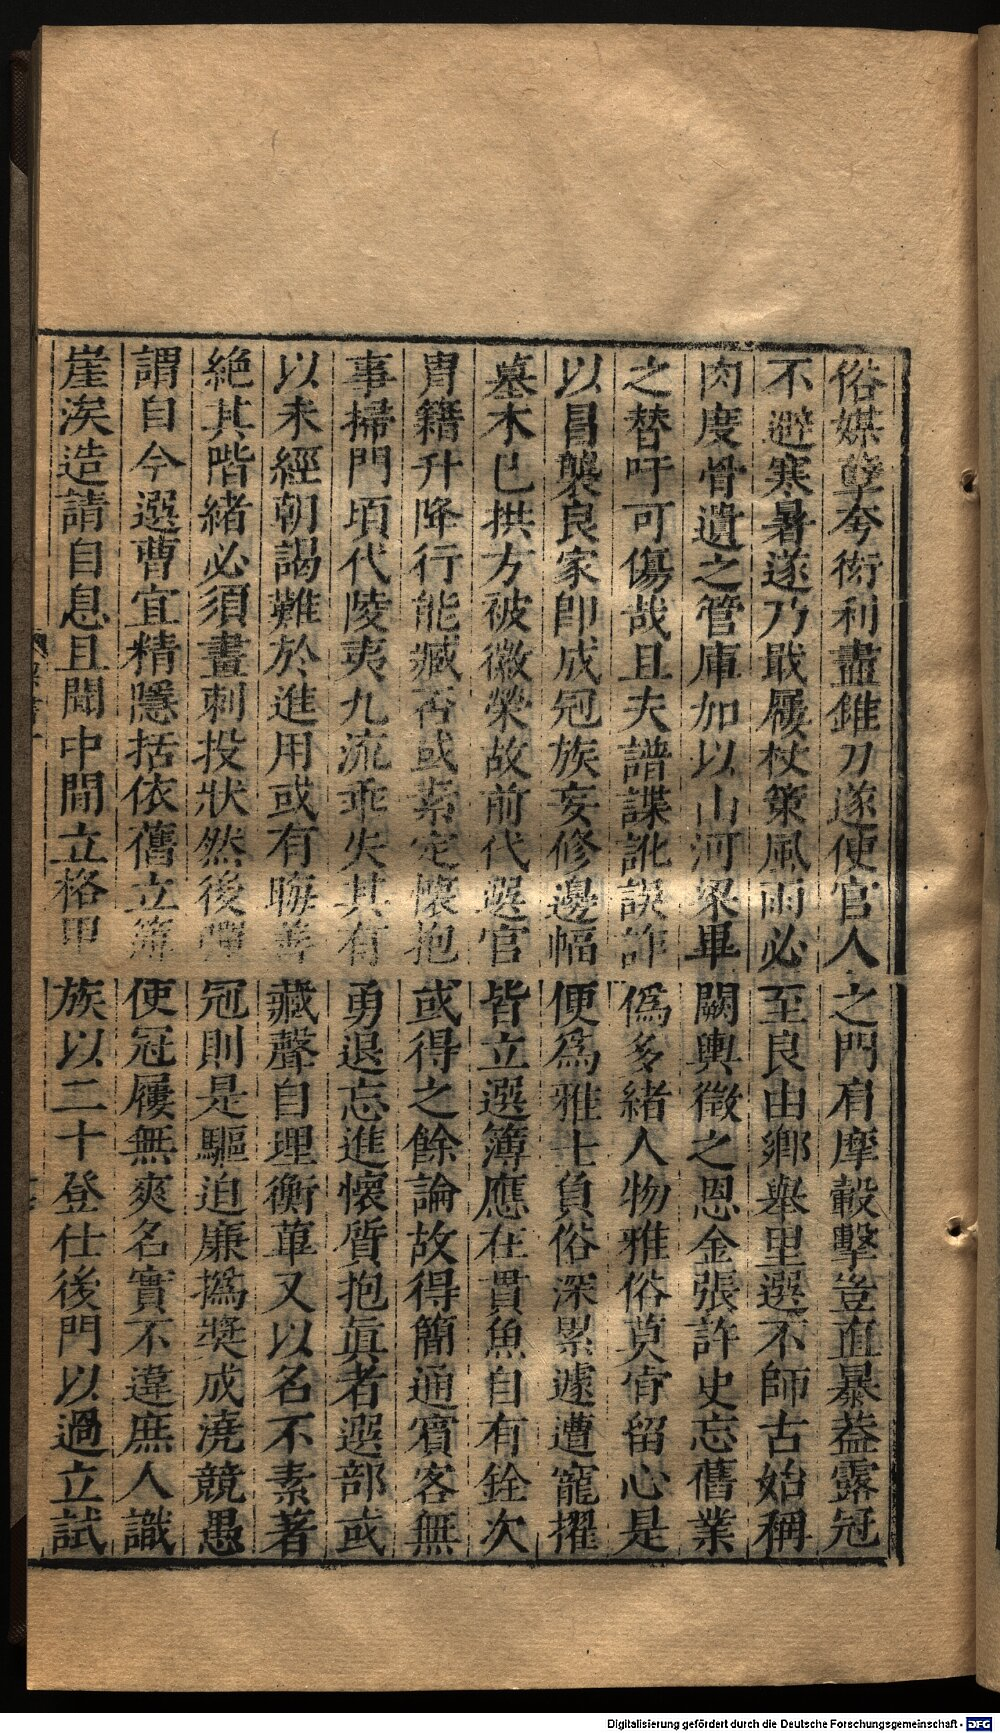 俗媒孽夸衒利盡錐刀遂使官人之門肩摩轂擊豈直暴葢露冠
不避寒暑遂乃戢屨杖策風雨必至良由鄉舉里選不師古始稱
肉度骨遺之管庫加以山河梁畢闕輿徵之恩金張許史忘舊業
之替吁可傷哉且夫譜諜訛誤詐僞多緒人物雅俗莫肯留心是
以冒襲良家卽成冠族妄修邊幅便爲雅士負俗深累遽遭寵擢
墓木已拱方被徽榮故前代選官皆立選簿應在貫魚自有銓次
胄籍升降行能臧否或素定懷抱或得之餘論故得簡通賓客無
事掃門頃代陵夷九流乖失其有勇退忘進懷質抱眞者選部或
以未經朝謁難於進用或有晦善藏聲自理衡蓽又以名不素著
絶其階緒必須畫刺投狀然後彈冠則是驅迫廉撝奬成澆競愚
謂自今選曹宜精隱括依舊立簿使冠屨無爽名實不違庶人識
崖涘造請自息且聞中間立格甲族以二十登仕後門以過立試
Digitalisierung gefördert durch die Deutsche Forschungsgemeinschaft - DFG